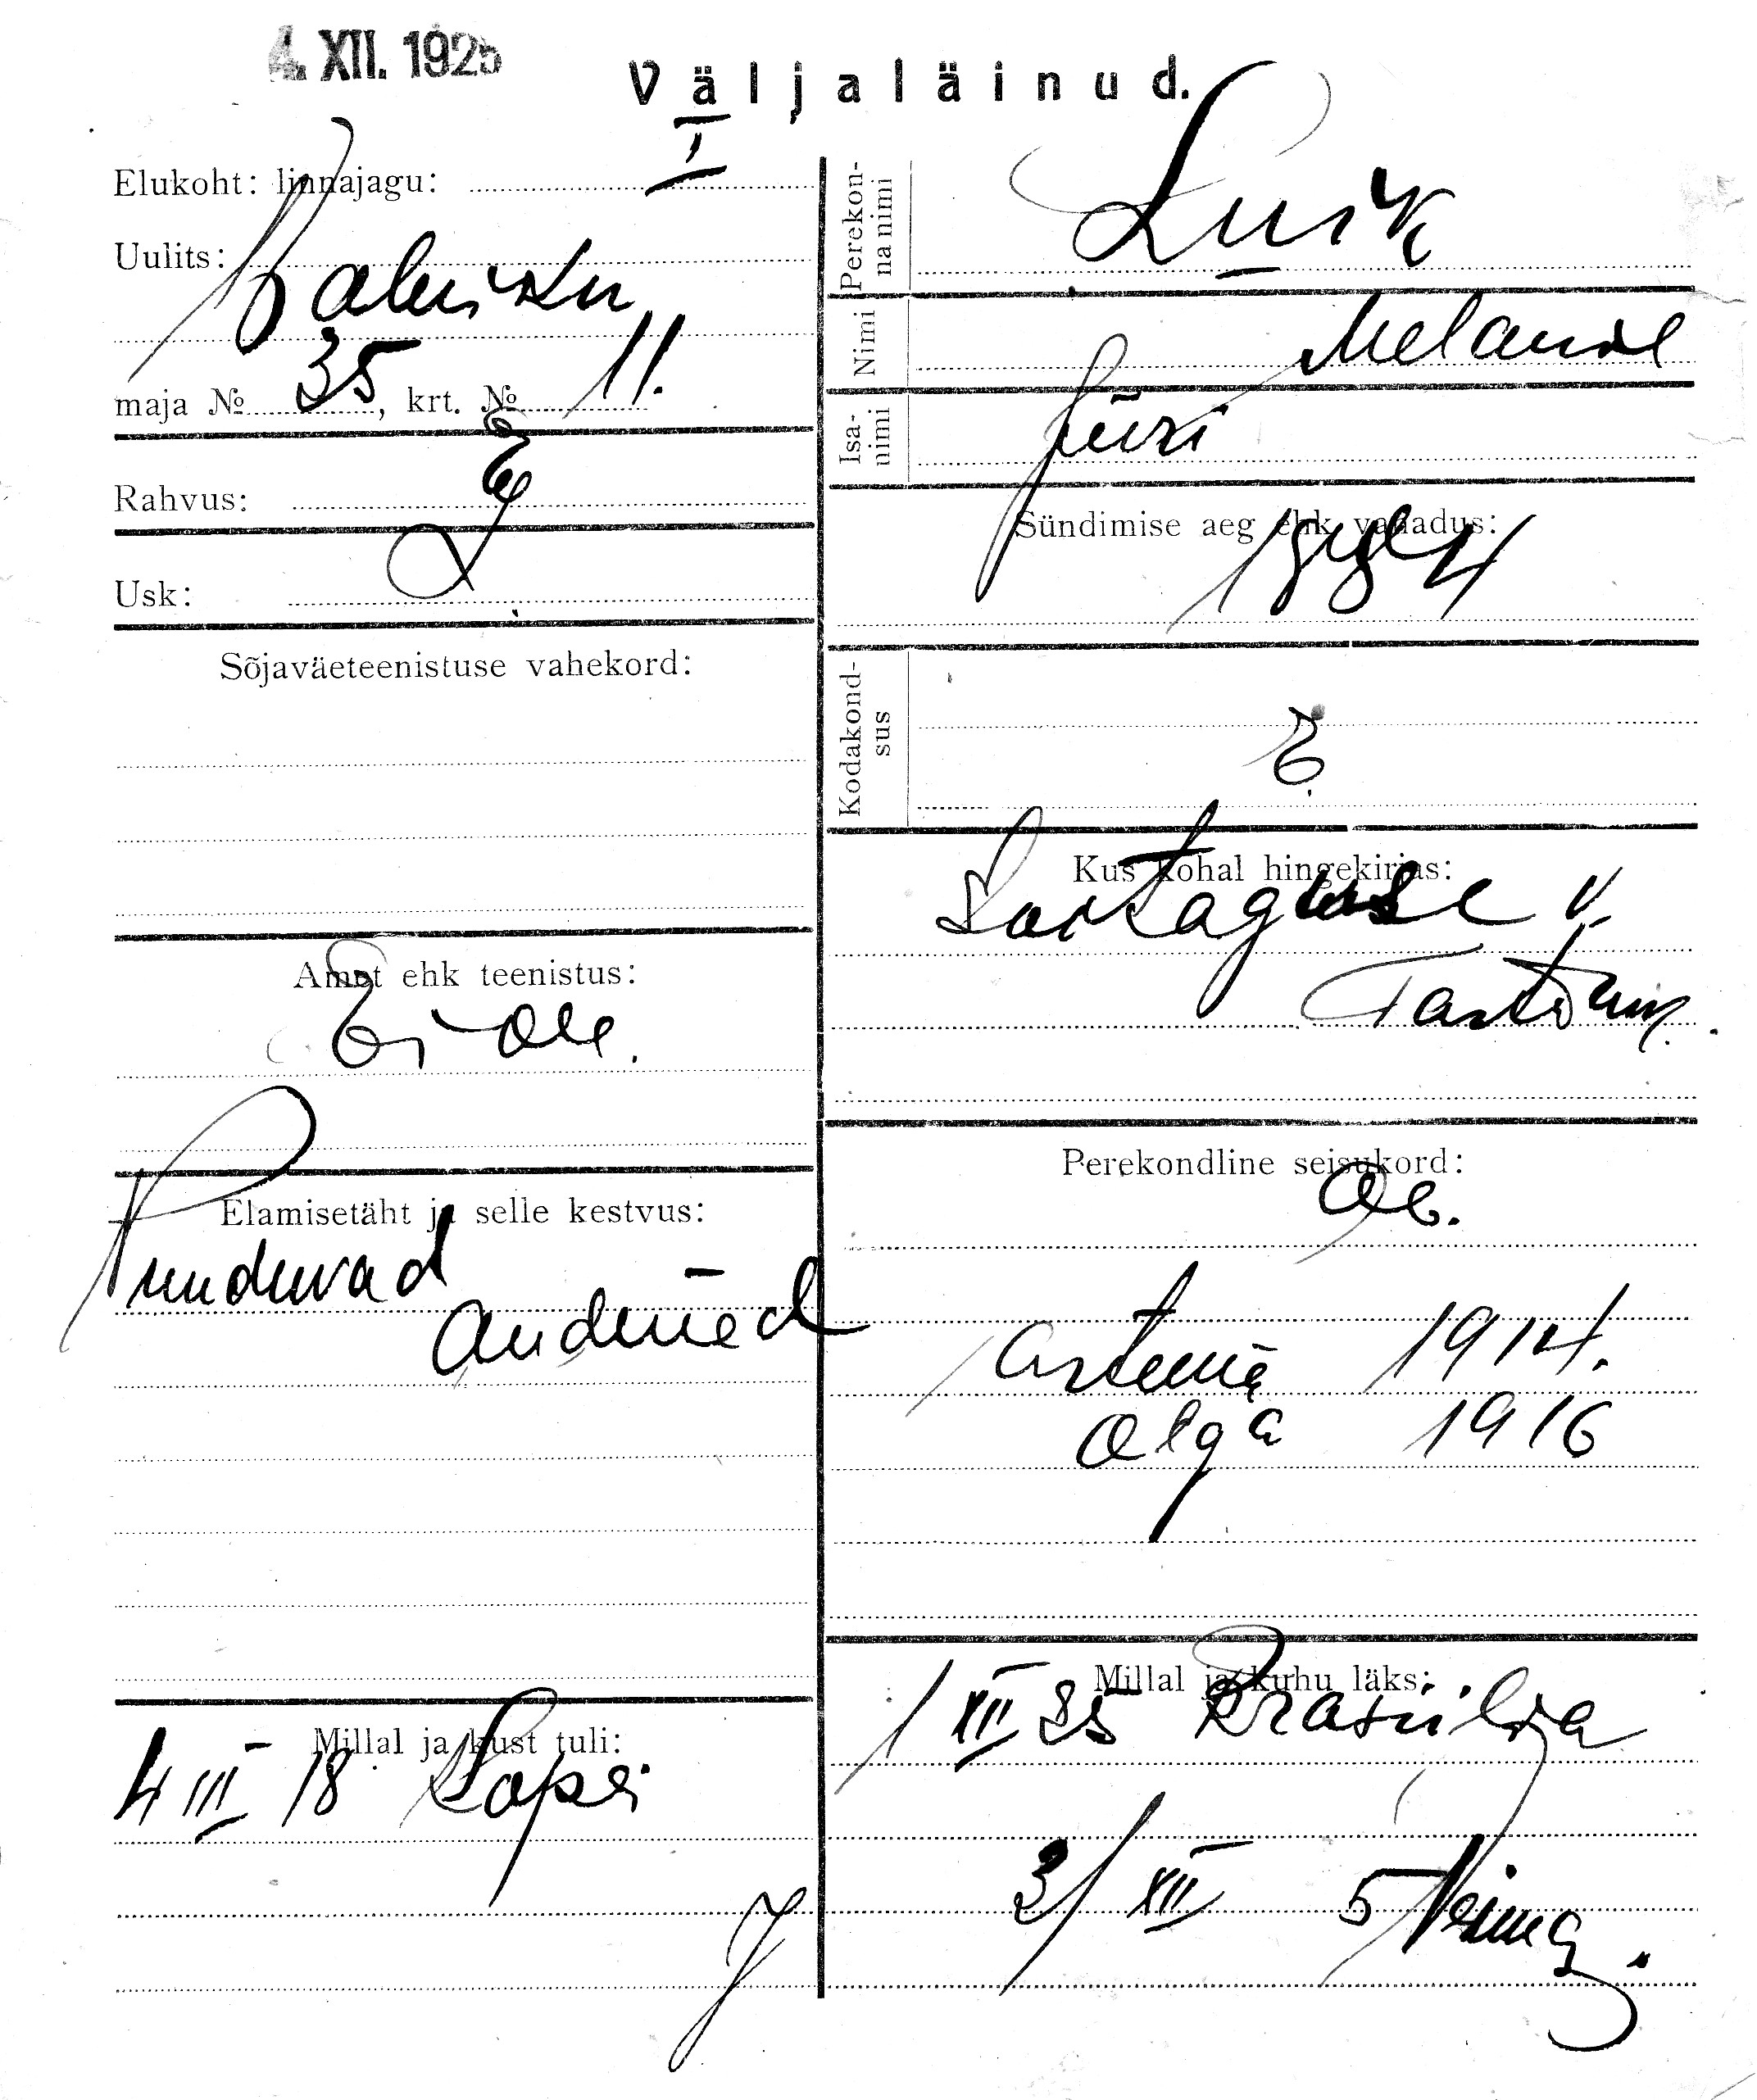 4. XII. 1925
Väljaläinud.
Elukoht: linnajagu: I
Uulits:
Vabriku
maja № 35, krt. № 11.
Rahvus: E
Usk: L
Sõjaväeteenistuse vahekord:
Amet ehk teenistus:
Ei ole.
Elamisetäht ja selle kestvus:
Puuduvad
andmed
Millal ja kust tuli:
4 III 18
Perekonnanimi Luik
Nimi Melanie
Isanimi Jüri
Sündimise aeg ehk vanadus:
Kodakondsus
E.
Kus kohal hingekirjas:
v.
Perekondline seisukord:
1914.
Olga 1916
Millal ja kuhu läks:
1 XII 25 Brasiilia
3/XII 5